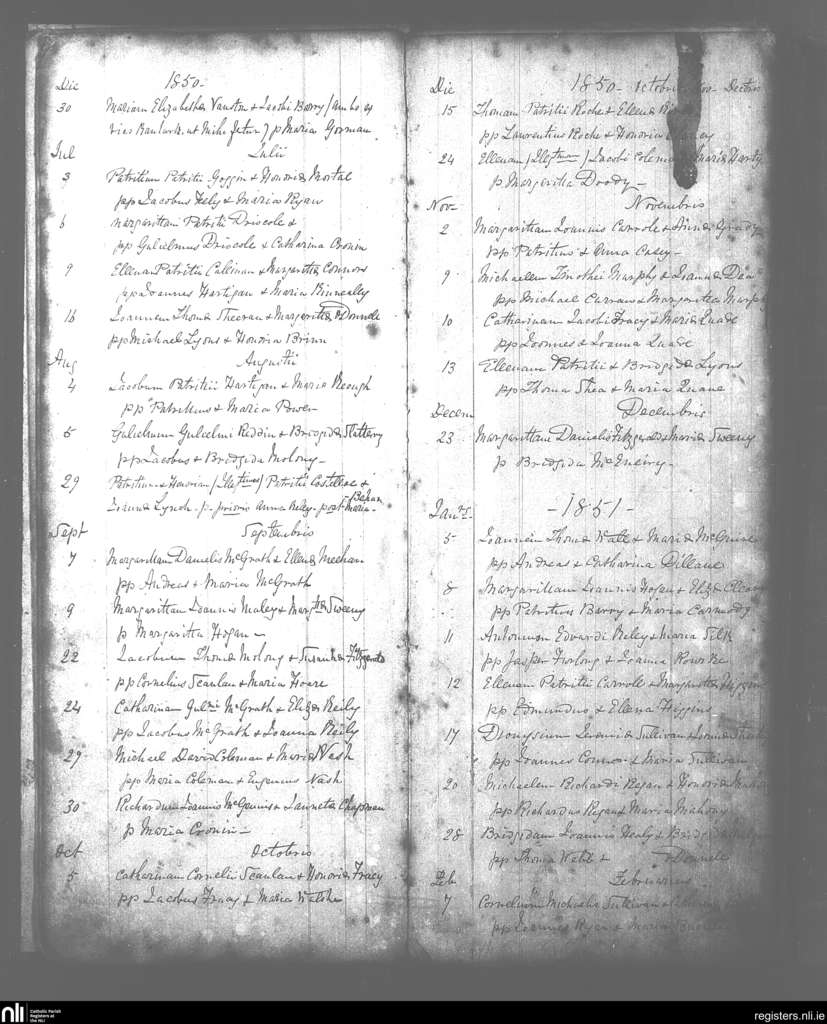 Die 1850-
30 Mariam Elizabetha Vauston & Jacobi Barry
p Maria Gorman
Jul Julii
3 Patritium Patritii Goggin & Honoria Mortal
pp Jacobus Hely & Maria Ryan
6 Margarittam Patritii Driscole &
pp Gulielmus Driscole & Catharina Cronin
9 Ellenam Patritii Callinan & Margaritta Connors
pp Joannes Hartigan & Maria Kinnealty
16 Joannem Thoma Sheeran & Margaritta O'Donnele
pp Michael Lyons & Honoria Brinn
Aug Augustii
4 Jacobum Patritii Hartigan & Maria Keough
pp Patritius & Maria Power
5 Gulielmum Gulielmi Reddin & Bridgida Slattery
pp Jacobus & Bredgida Molony-
29 Patritium & Honoriam Patritii Costeloe &
Joanna Lynch - p. prioris Anna Reley - post. Maria Behan
Sept Septembris
7 Margarittam Danielis McGrath & Ellena Meehan
pp Andreas & Maria McGrath
9 Margarittam Joannis Maley & Margtta Sweeny
p Margaritta Hogan -
22 Jacobum Thoma Molony & Susanna Fitzgerald
pp Cornelius Scanlan & Maria Hoare
24 Catharinam Gulmi McGrath & Eliza Reily
pp Jacobus McGrath & Joanna Reily
29 Michael David Coleman & Maria Nash
pp Maria Coleman & Eugenius Nash
30 Richardum Joannis McGennis & Janneta Chapman
p Maria Cronin -
Oct Octobris
5 Catharinam Cornelii Scanlan & Honoria Tracy
pp Jacobus Tracy & Maria Walshe
Die 1850 - Octobris Nov - Decbris
15 Thomam Patritii Roche & Ellena
pp Laurentius Roche & Honoria
24 Ellenam Jacobi Coleman Maria Harty
p Margaritta Doody -
Nov- Novembris
2 Margarittam Joannis Carrole & Anna Grady
pp Patritius & Anna Casey -
9 Michaelem Timothei Murphy & Joanna Dea
pp Michael Curran & Margaritta Murphy
10 Catharinam Jacobi Tracy & Maria Quade
pp Joannes & Joanna Quade
13 Ellenam Patritii & Bridgida Lyons
pp Thoma Shea & Maria Quane
Decem Decembris
23 Margarittam Danielis Fitzgerald & Maria Sweeny
p Bredgida McEneiry -
- 1851 -
Jan
5 Joannem Thoma Wall & Maria McGuire
pp Andreas & Catharina Dillane
8 Margarittam Joannis Hogan & Eliza Cleary
pp Patritius Barry & Maria Carmody
11 Antonium Edvardi Reley & Maria Silk
pp Jasper Furlong & Joanna Rourke
12 Ellenam Patritii Carrole & Margaritta Higgins
pp Edmundus & Ellena Higgins
17 Dionysium Jeremia Sullivan & Joanna
pp Joannes Connor & Maria Sullivan
20 Michaelem Richardi Regan & Honoria
pp Richardus Regan & Maria Mahony
28 Bridgidam Joannis Healy & Bridgida
pp Thoma Walsh & O'Donnele
Feb Februarius
7 Cornelium Michaelis Sullivan &
pp Joannes Ryan & Maria
nli Catholic Parish
Registers at
the NLI
registers.nli.ie